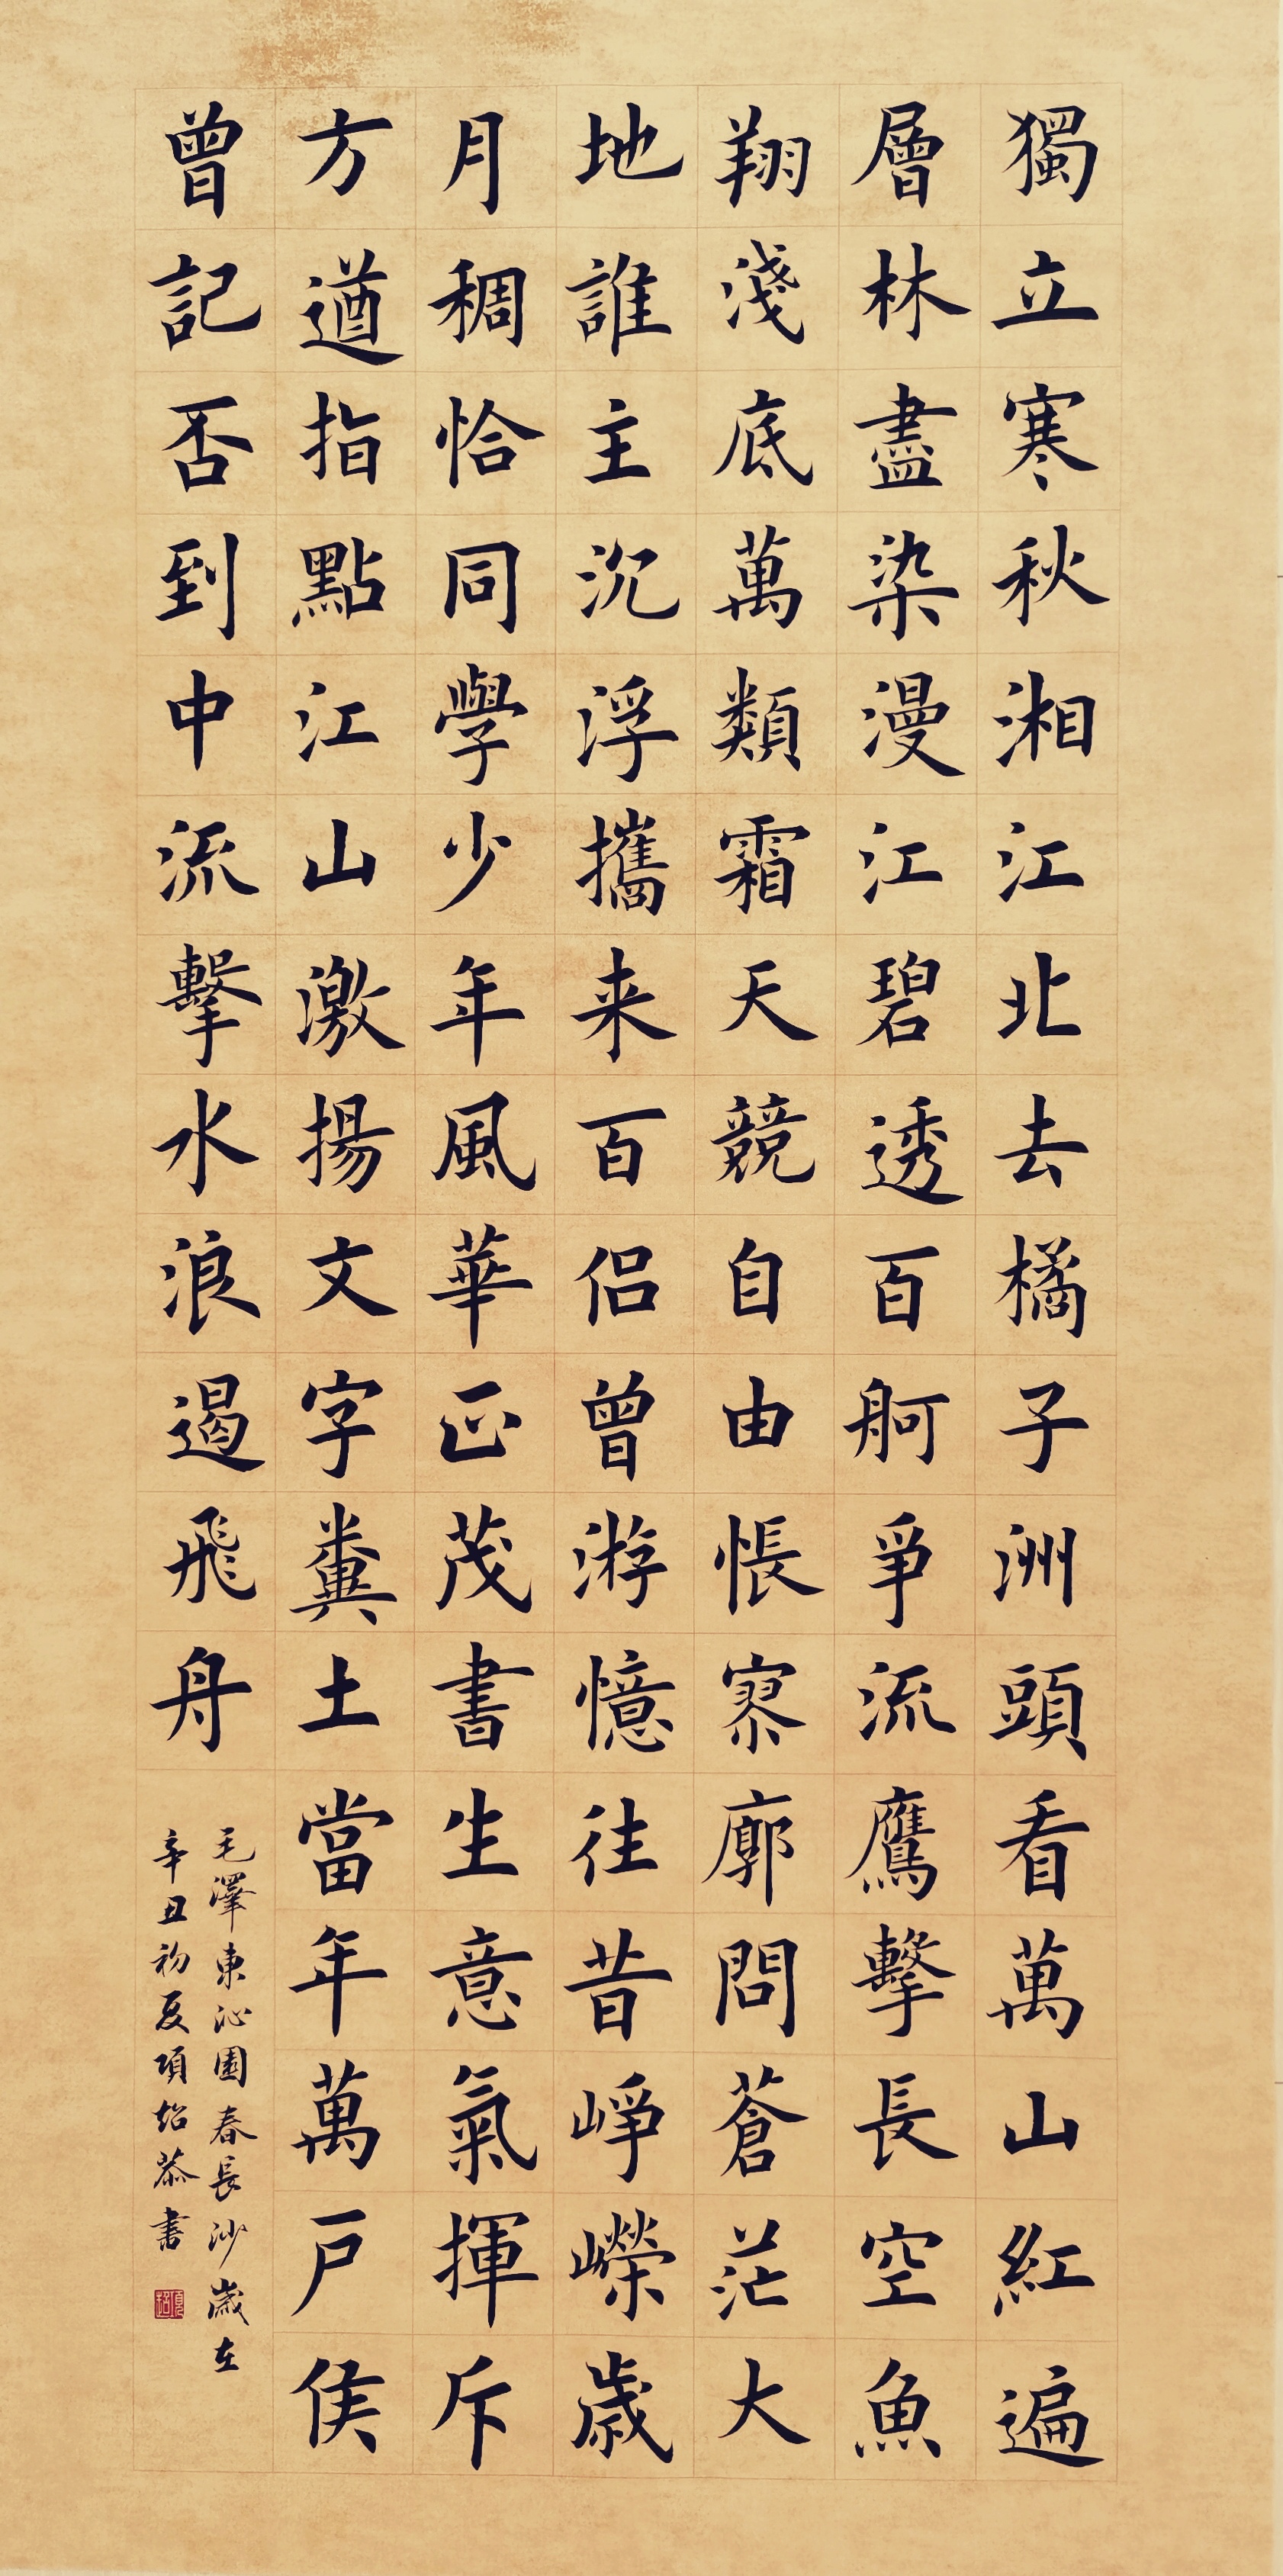 獨立寒秋湘江北去橘子洲頭看萬山紅遍
層林盡染漫江碧透百舸爭流鷹擊長空魚
翔淺底萬類霜天競自由悵寥廓問蒼茫大
地誰主沉浮攜来百侣曾游憶往昔崢嶸歲
月稠恰同學少年風華正茂書生意氣揮斥
方遒指點江山激揚文字糞土當年萬戶侯
曾記否到中流擊水浪遏飛舟
毛澤東沁園春長沙歲在
辛丑初夏項韶恭書